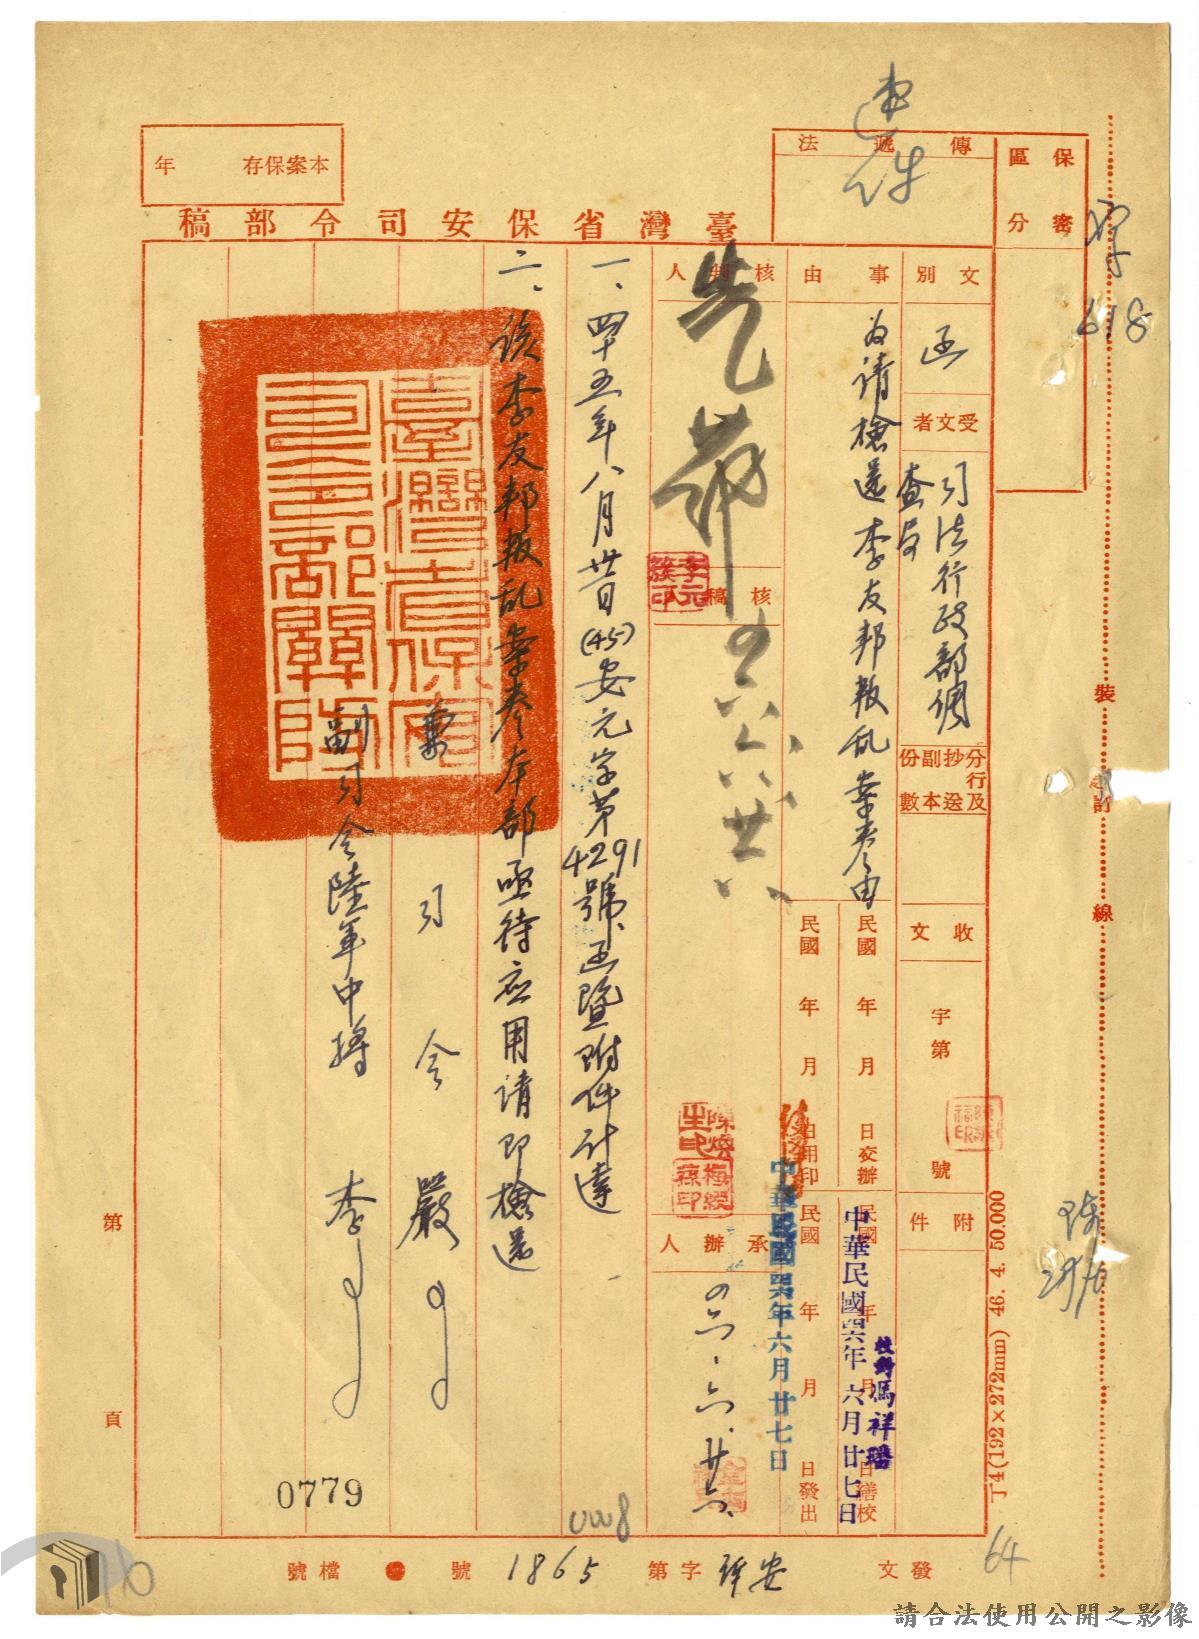 保密
區分
傳遞法
速件
本案保存　年
臺灣省保安司令部稿
文別
函
受文者
司法行政部調
查局
分行及
抄送
副本
份數
收文
字第　號
附件
事由
為請檢還李友邦叛乱案卷由
民國　年　月　日交辦
民國　年　月　日繕校
中華民國四六年六月廿七日
校對馮祥瑞
民國　年　月　日用印
民國　年　月　日發出
中華民國四六年六月廿七日
核判人
核稿
李元簇印
承辦人
一、四十五年八月廿日(45)安元字第4291號函暨附件計達
二、該李友邦叛乱案卷本部亟待应用請即檢還
兼司令嚴
副司令陸軍中將李
臺灣省保安司令部關防
裝
訂
線
第　頁
0779
發文
安
字第
1865
號
檔號
64
618
丁4(192×272mm) 46. 4. 50.000
請合法使用公開之影像